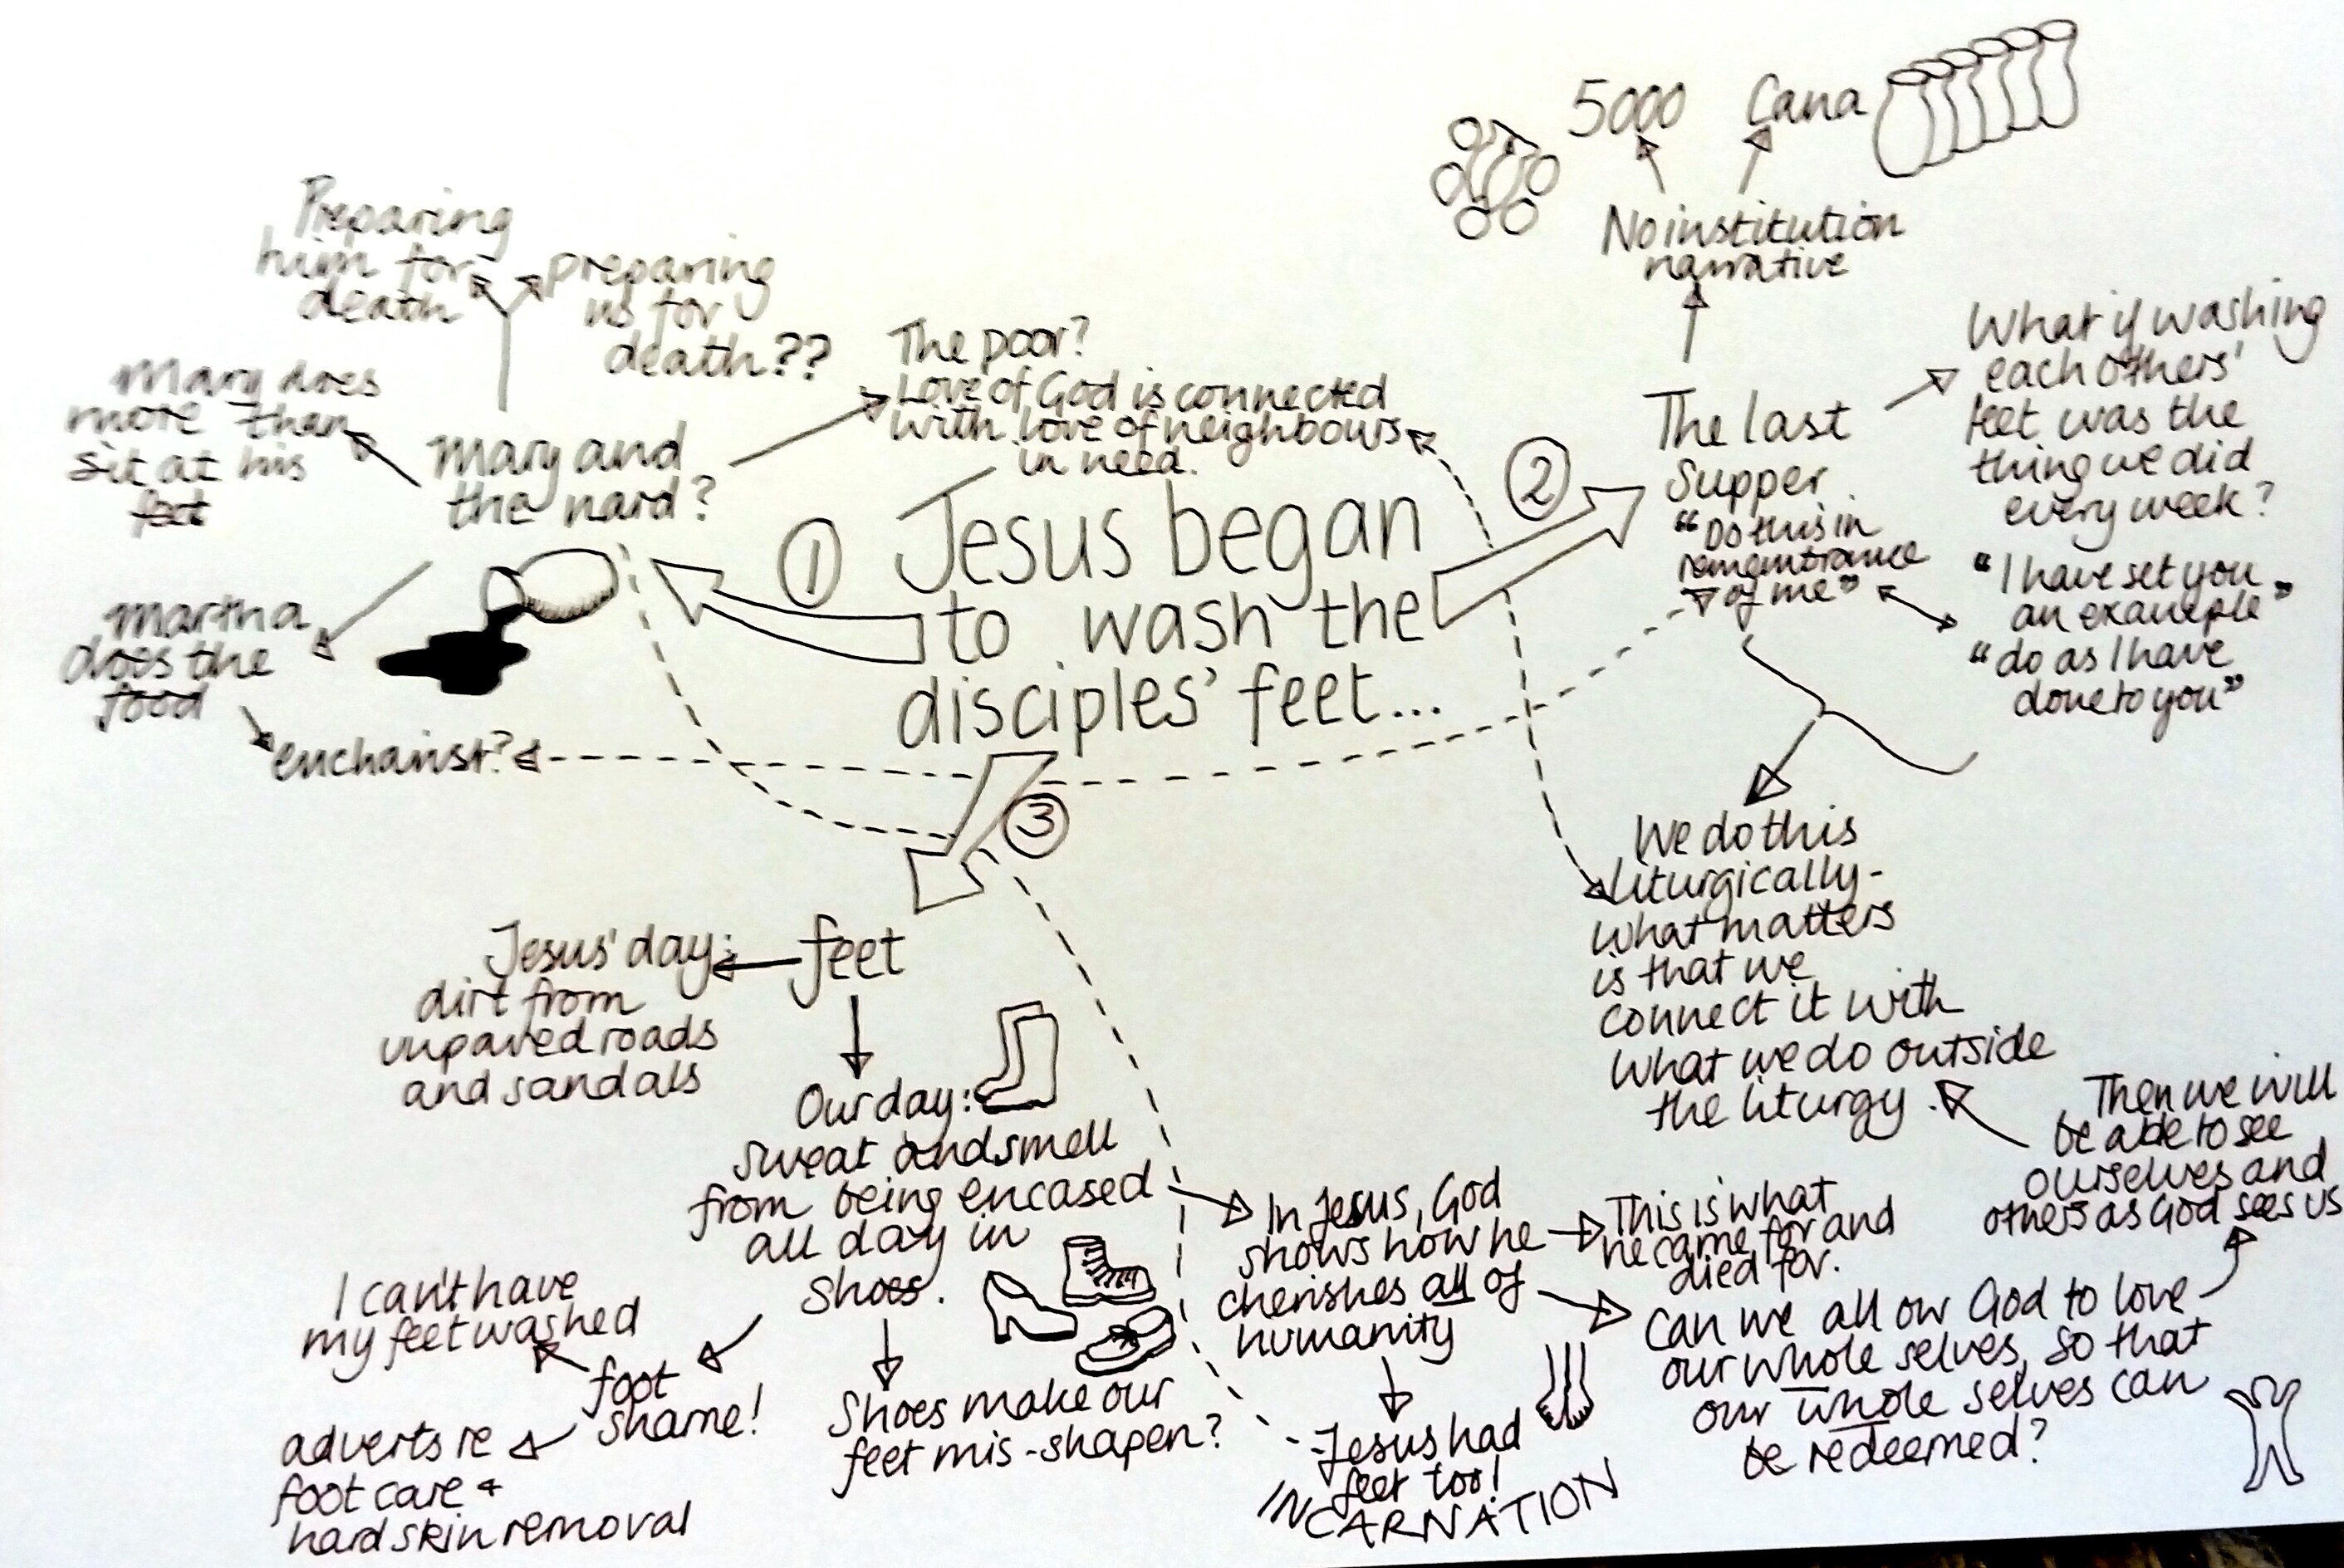 Jesus began
to wash the
disciples' feet...
1
Mary and
the nard?
Preparing
him for
death
preparing
us for
death??
Mary does
more than
sit at his
feet
Martha
does the
food
eucharist?
The poor?
Love of God is connected
with love of neighbours
in need.
2
The last
Supper
"Do this in
remembrance
of me"
No institution
narrative
5000
Cana
What if washing
each others'
feet was the
thing we did
every week?
"I have set you
an example"
"do as I have
done to you"
We do this
liturgically -
what matters
is that we
connect it with
what we do outside
the liturgy.
3
feet
Jesus' day:
dirt from
unpaved roads
and sandals
Our day:
sweat and smell
from being encased
all day in
shoes.
foot
shame!
I can't have
my feet washed
adverts re
foot care +
hard skin removal
Shoes make our
feet mis-shapen?
In Jesus, God
shows how he
cherishes all of
humanity
This is what
he came for and
died for.
Jesus had
feet too!
INCARNATION
Can we all ow God to love
our whole selves, so that
our whole selves can
be redeemed?
Then we will
be able to see
ourselves and
others as God sees us